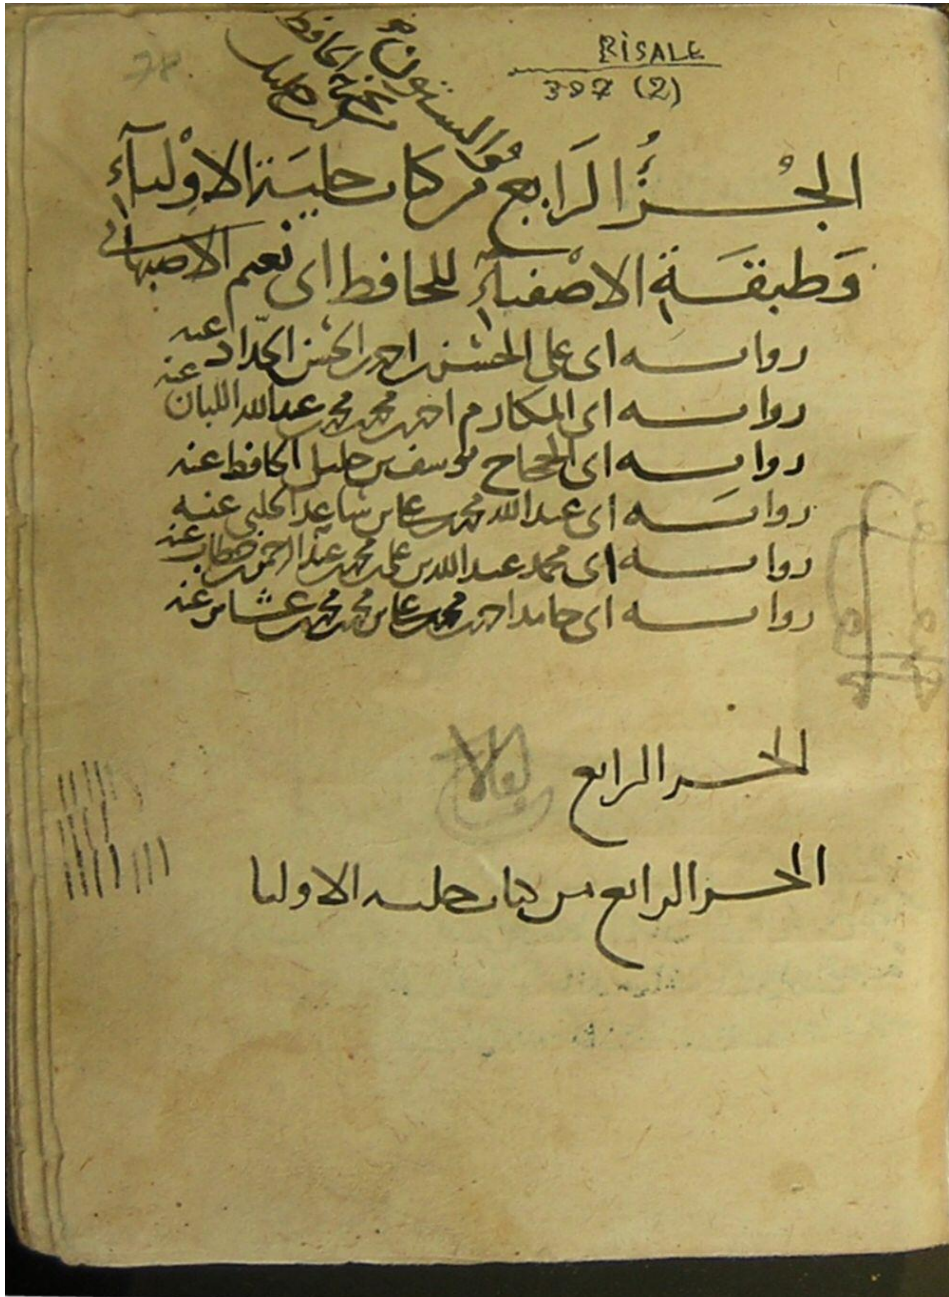 78
RISALE
397 (2)
والستون
نسخة الحافظ
بن خليل
الجُزْءُ الرَابِعُ من كتاب حليَة الاوْلياء
وَطبقَة الاصْفياءِ للحافظ ابى نعيم الاصبهانى
رواىــه ابى على الحسن بن احمد بن الحسن الحدّاد عنه
رواىــه ابى المكارم احمد بن محمد بن محمد بن عبد الله اللبان عنه
رواىــه ابى الحجاج يوسف بن خليل الحافظ عنه
رواىــه ابى عبد الله محمد بن على بن ساعد الحلبى عنه
رواىــه ابى محمد عبد الله بن على بن محمد بن عبد الرحمن بن خطاب عنه
رواىــه ابى حامد احمد بن محمد بن على بن محمد بن محمد بن عشاىر عنه
الجــز الرابع
الجــز الرابع من كتاب حليه الاوليا